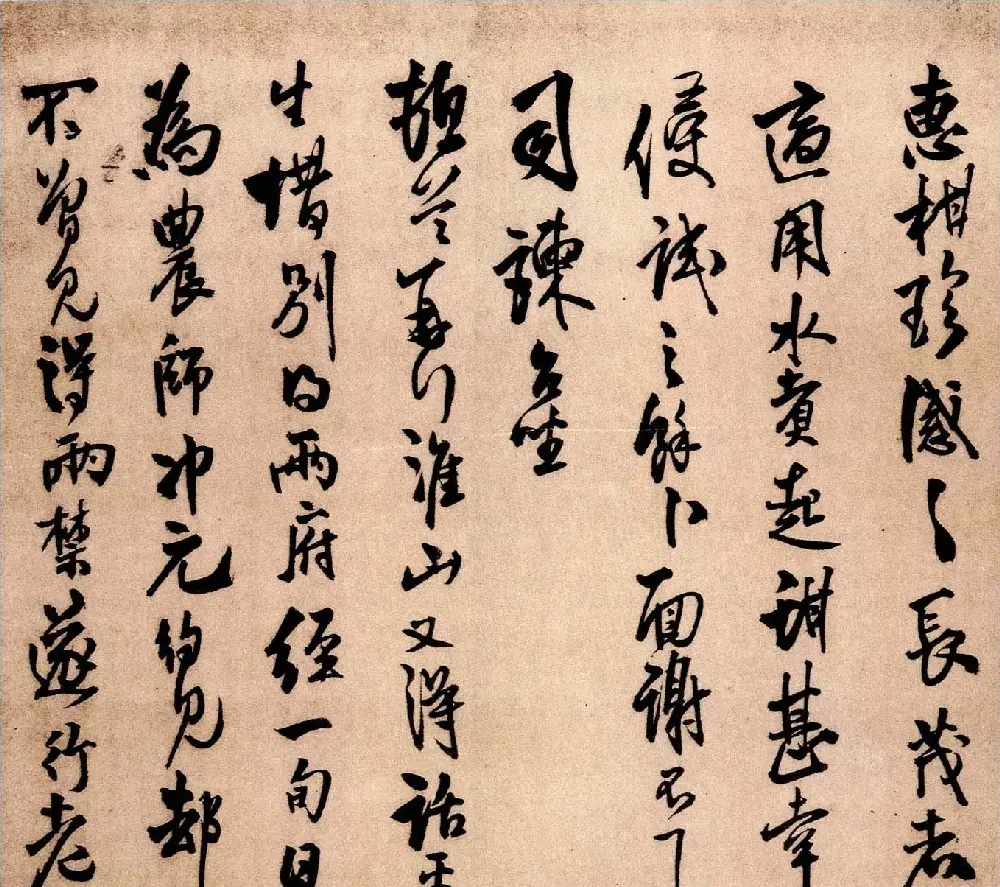 惠柑珍感〻長茂者
適用水煮起甜甚幸
便試之餘卜面謝不一
司諫台坐
再行淮山又得話平
生惜別兩府經一旬日
為農師冲元約見都
不曾見得兩禁遂行老